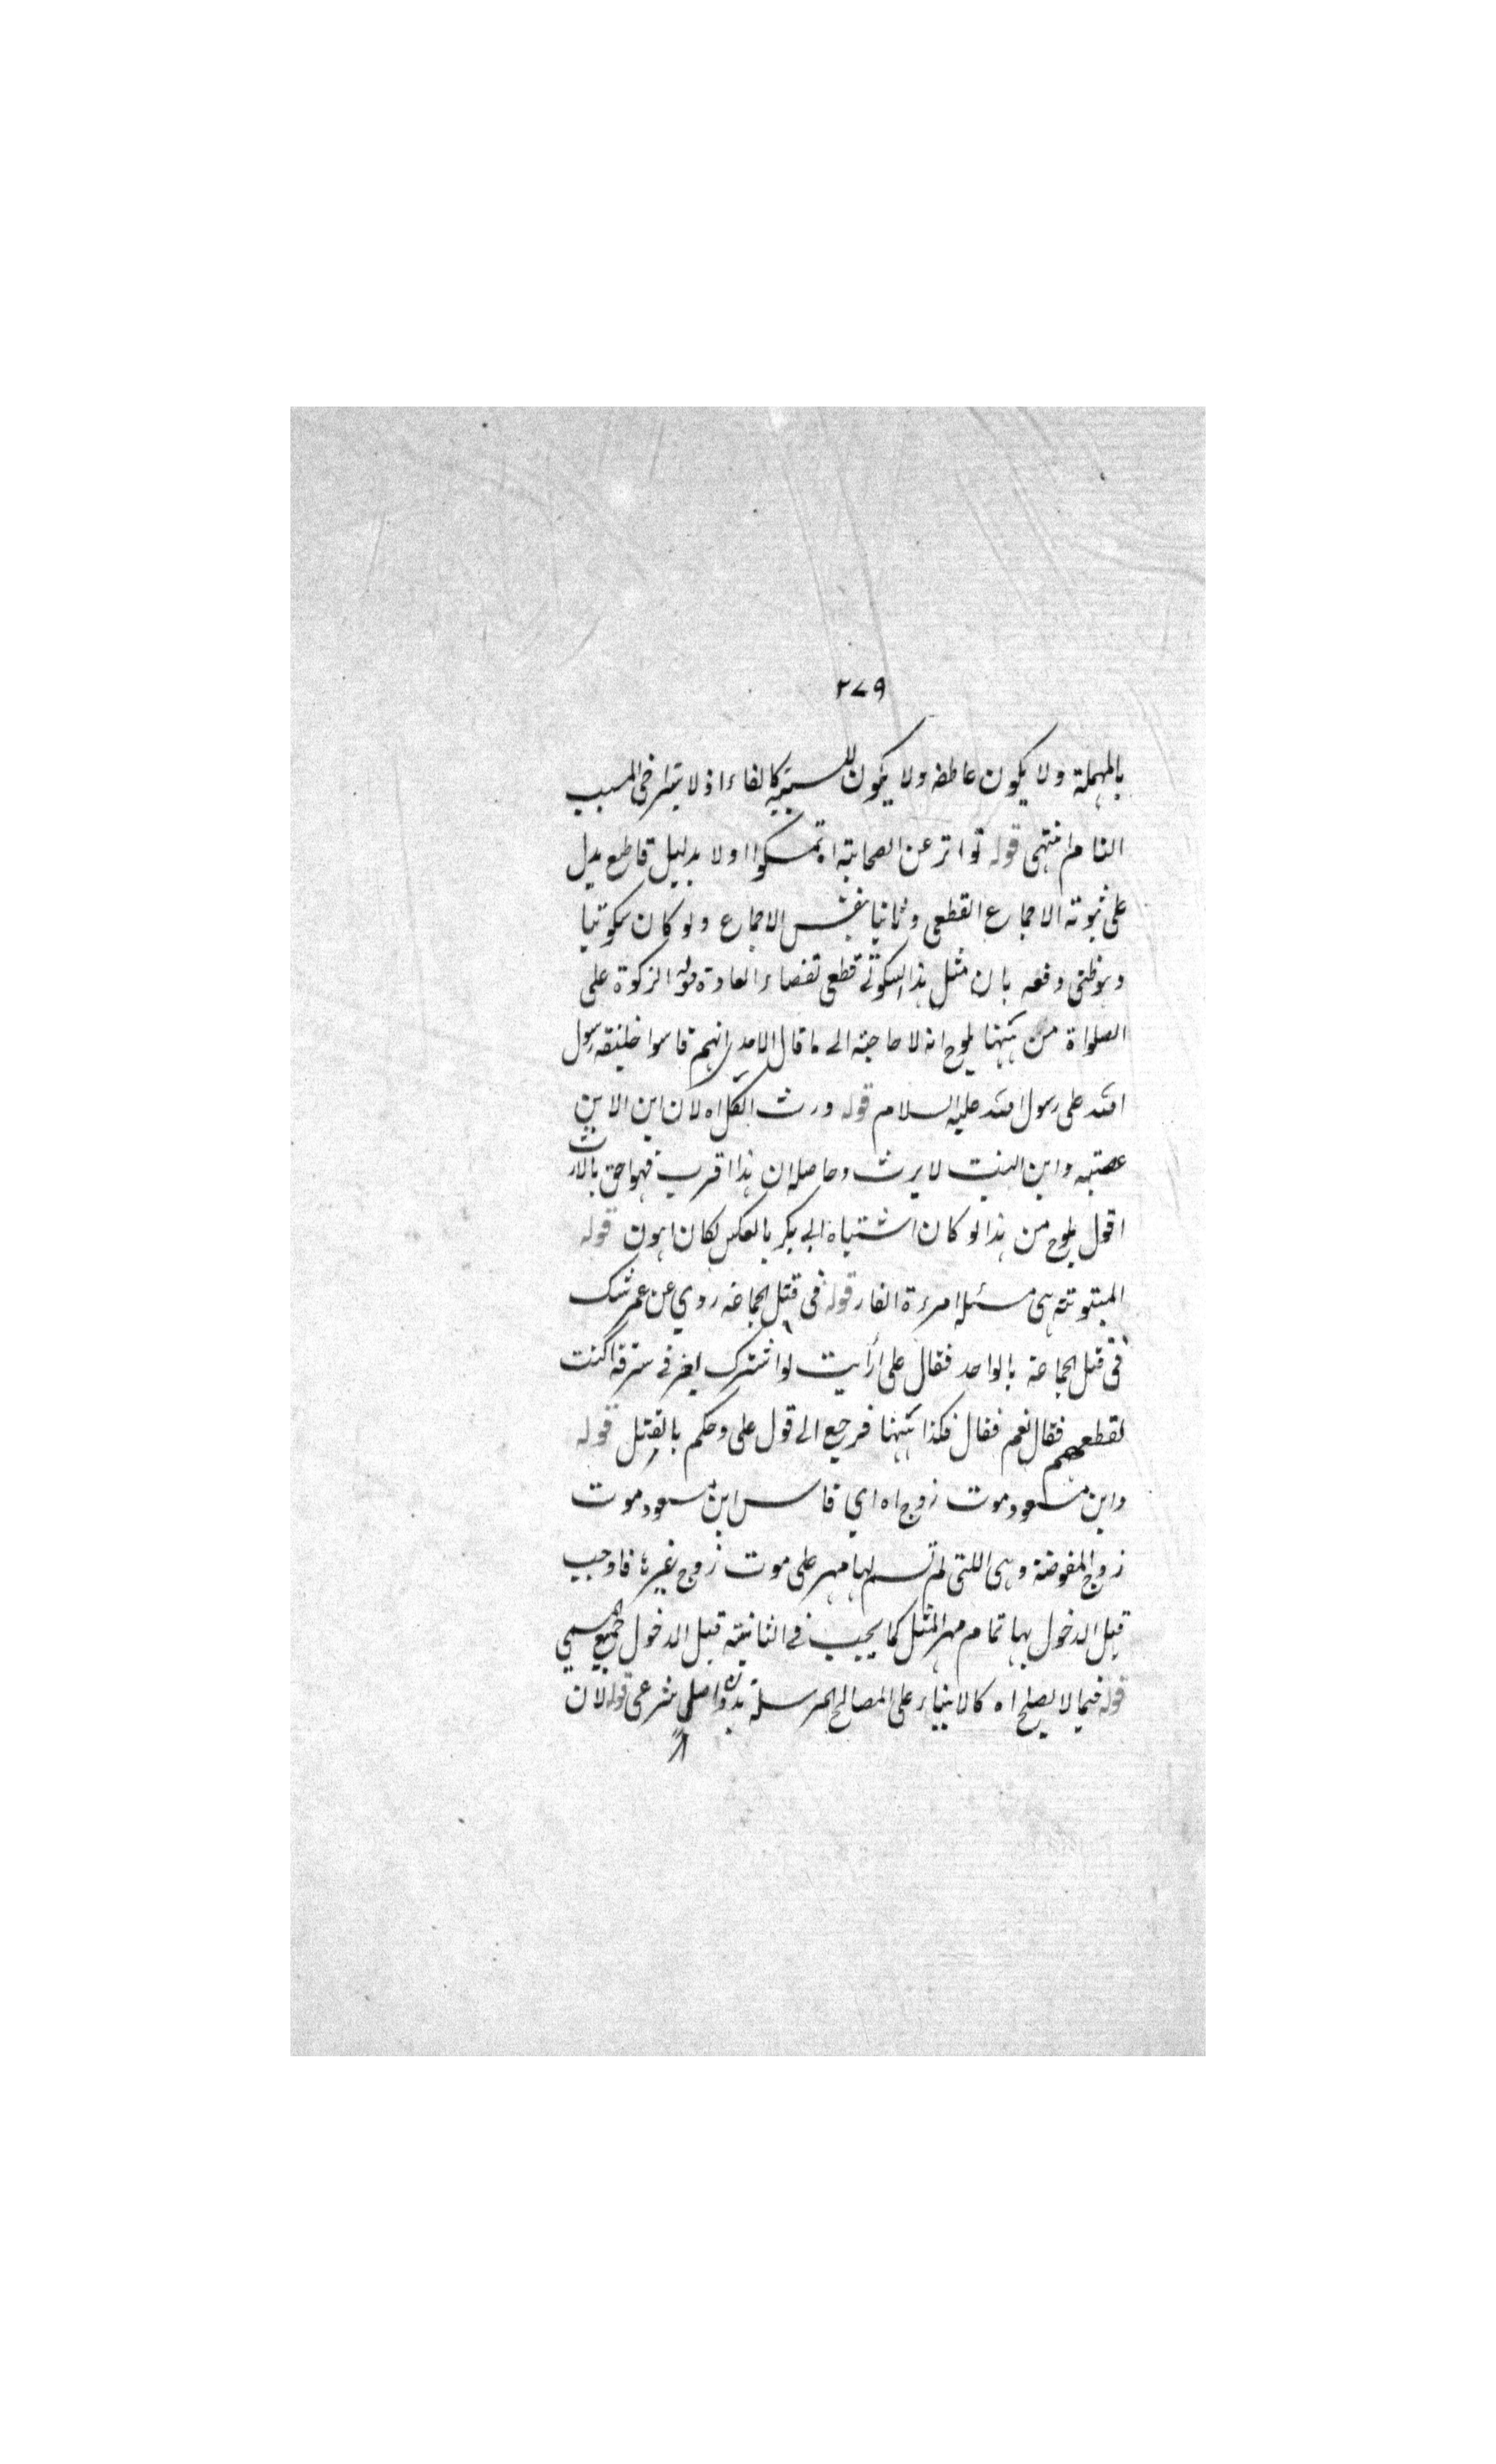 ٢٧٩
بالمهملة ولا يكون عاطفه ولا يكون للسببية كالفاء اذ لا يتراخى المسبب
التام انتهى قوله تواتر عن الصحابة اه تمسكوا اولا بدليل قاطع يدل
على ثبوته الاجماع القطعى وثانيا بنفس الاجماع ولو كان سكوتيا
وهو ظنى دفعه بان مثل هذا السكوتى قطعى لقضاء العادة قوله الزكوة على
الصلواة من ههنا يلوح انه لا حاجة الى ما قال الامدى انهم قاسوا خليفة رسول
الله على رسول الله عليه السلام قوله ورث الكل اه لان ابن الابن
عصبة وابن البنت لا يرث وحاصله ان هذا اقرب فهو احق بالارث
اقول يلوح من هذا لو كان اشتباه ابى بكر بالعكس لكان اهون قوله
المبتوتة هى مسئلة امرءة الفار قوله فى قتل الجماعة روي عن عمر شك
فى قتل الجماعة بالواحد فقال على أرأيت لو اشترك نفر فى سرقة اكنت
تقطعهم فقال نعم فقال فكذا ههنا فرجع الى قول على وحكم بالقتل قوله
وابن مسعود موت زوج اه اي قاس ابن مسعود موت
زوج المفوضة وهى اللتى لم تسم لها مهر على موت زوج غيرها فاوجب
قبل الدخول بها تمام مهر المثل كما يجب فى الثانية قبل الدخول جميع المسمي
قوله فيما لا يصلح اه كالابتناء على المصالح المرسلة بدون اصلي شرعى قوله لان